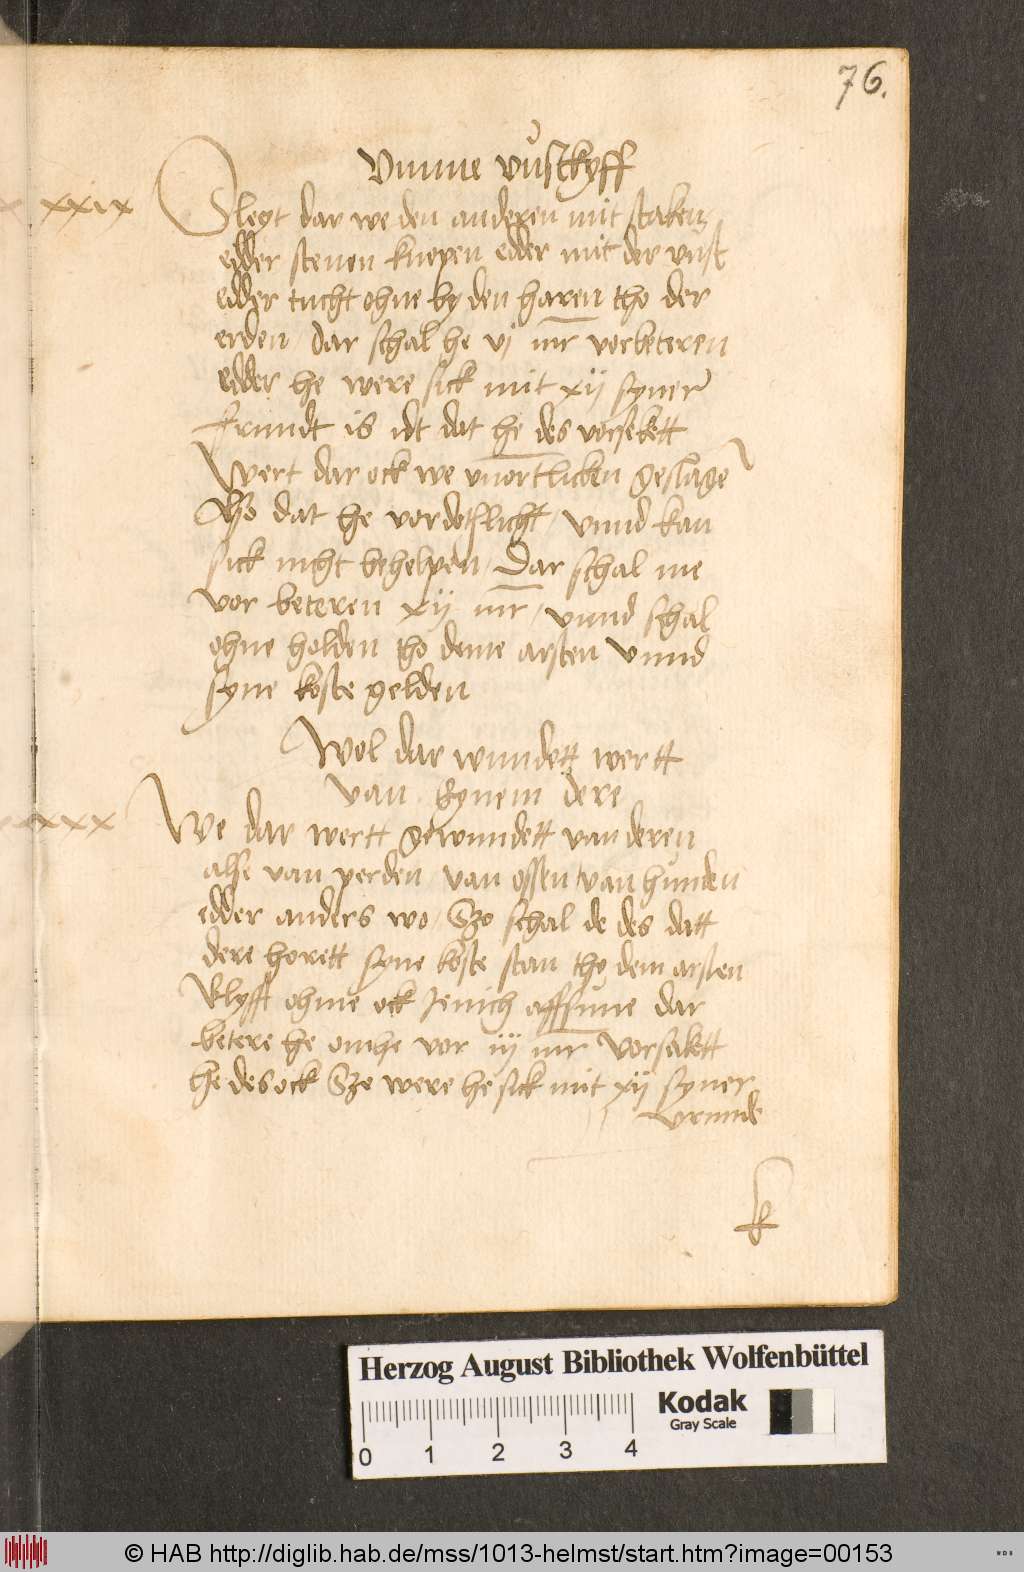 76.
Vmme vustkyff
xxix
Slegt dar we den anderen mit staken
edder stenen knepen edder mit der vust
edder tucht ohne by den haren tho der
erden / dar schal he vj mr vorbeteren
edder he were sick mit xij syner
frundt is idt dat he des vorsekett
Wert dar ock we vnortlicken geslage
Also dat he vordofflicht / vnnd kan
sick nicht behelpen / Dar schal me
vor beteren xij mr / vnnd schal
ohne holden tho deme arsten Vnnd
syne koste gelden
Wol dar wundett wertt
van Eynem dere
xxx
We dar wertt gewundett van deren
alse van perden / van ossen / van hunden
edder anders wo / Szo schal de des datt
dere horett syne koste stan tho dem arsten
Blyfft ohme ock Jenich afffune dar
betere he omhe vor iij mr Vorsakett
he des ock Sze were he sick mit xij syner
vrunde
k
Herzog August Bibliothek Wolfenbüttel
Kodak
Gray Scale
0 1 2 3 4
© HAB http://diglib.hab.de/mss/1013-helmst/start.htm?image=00153